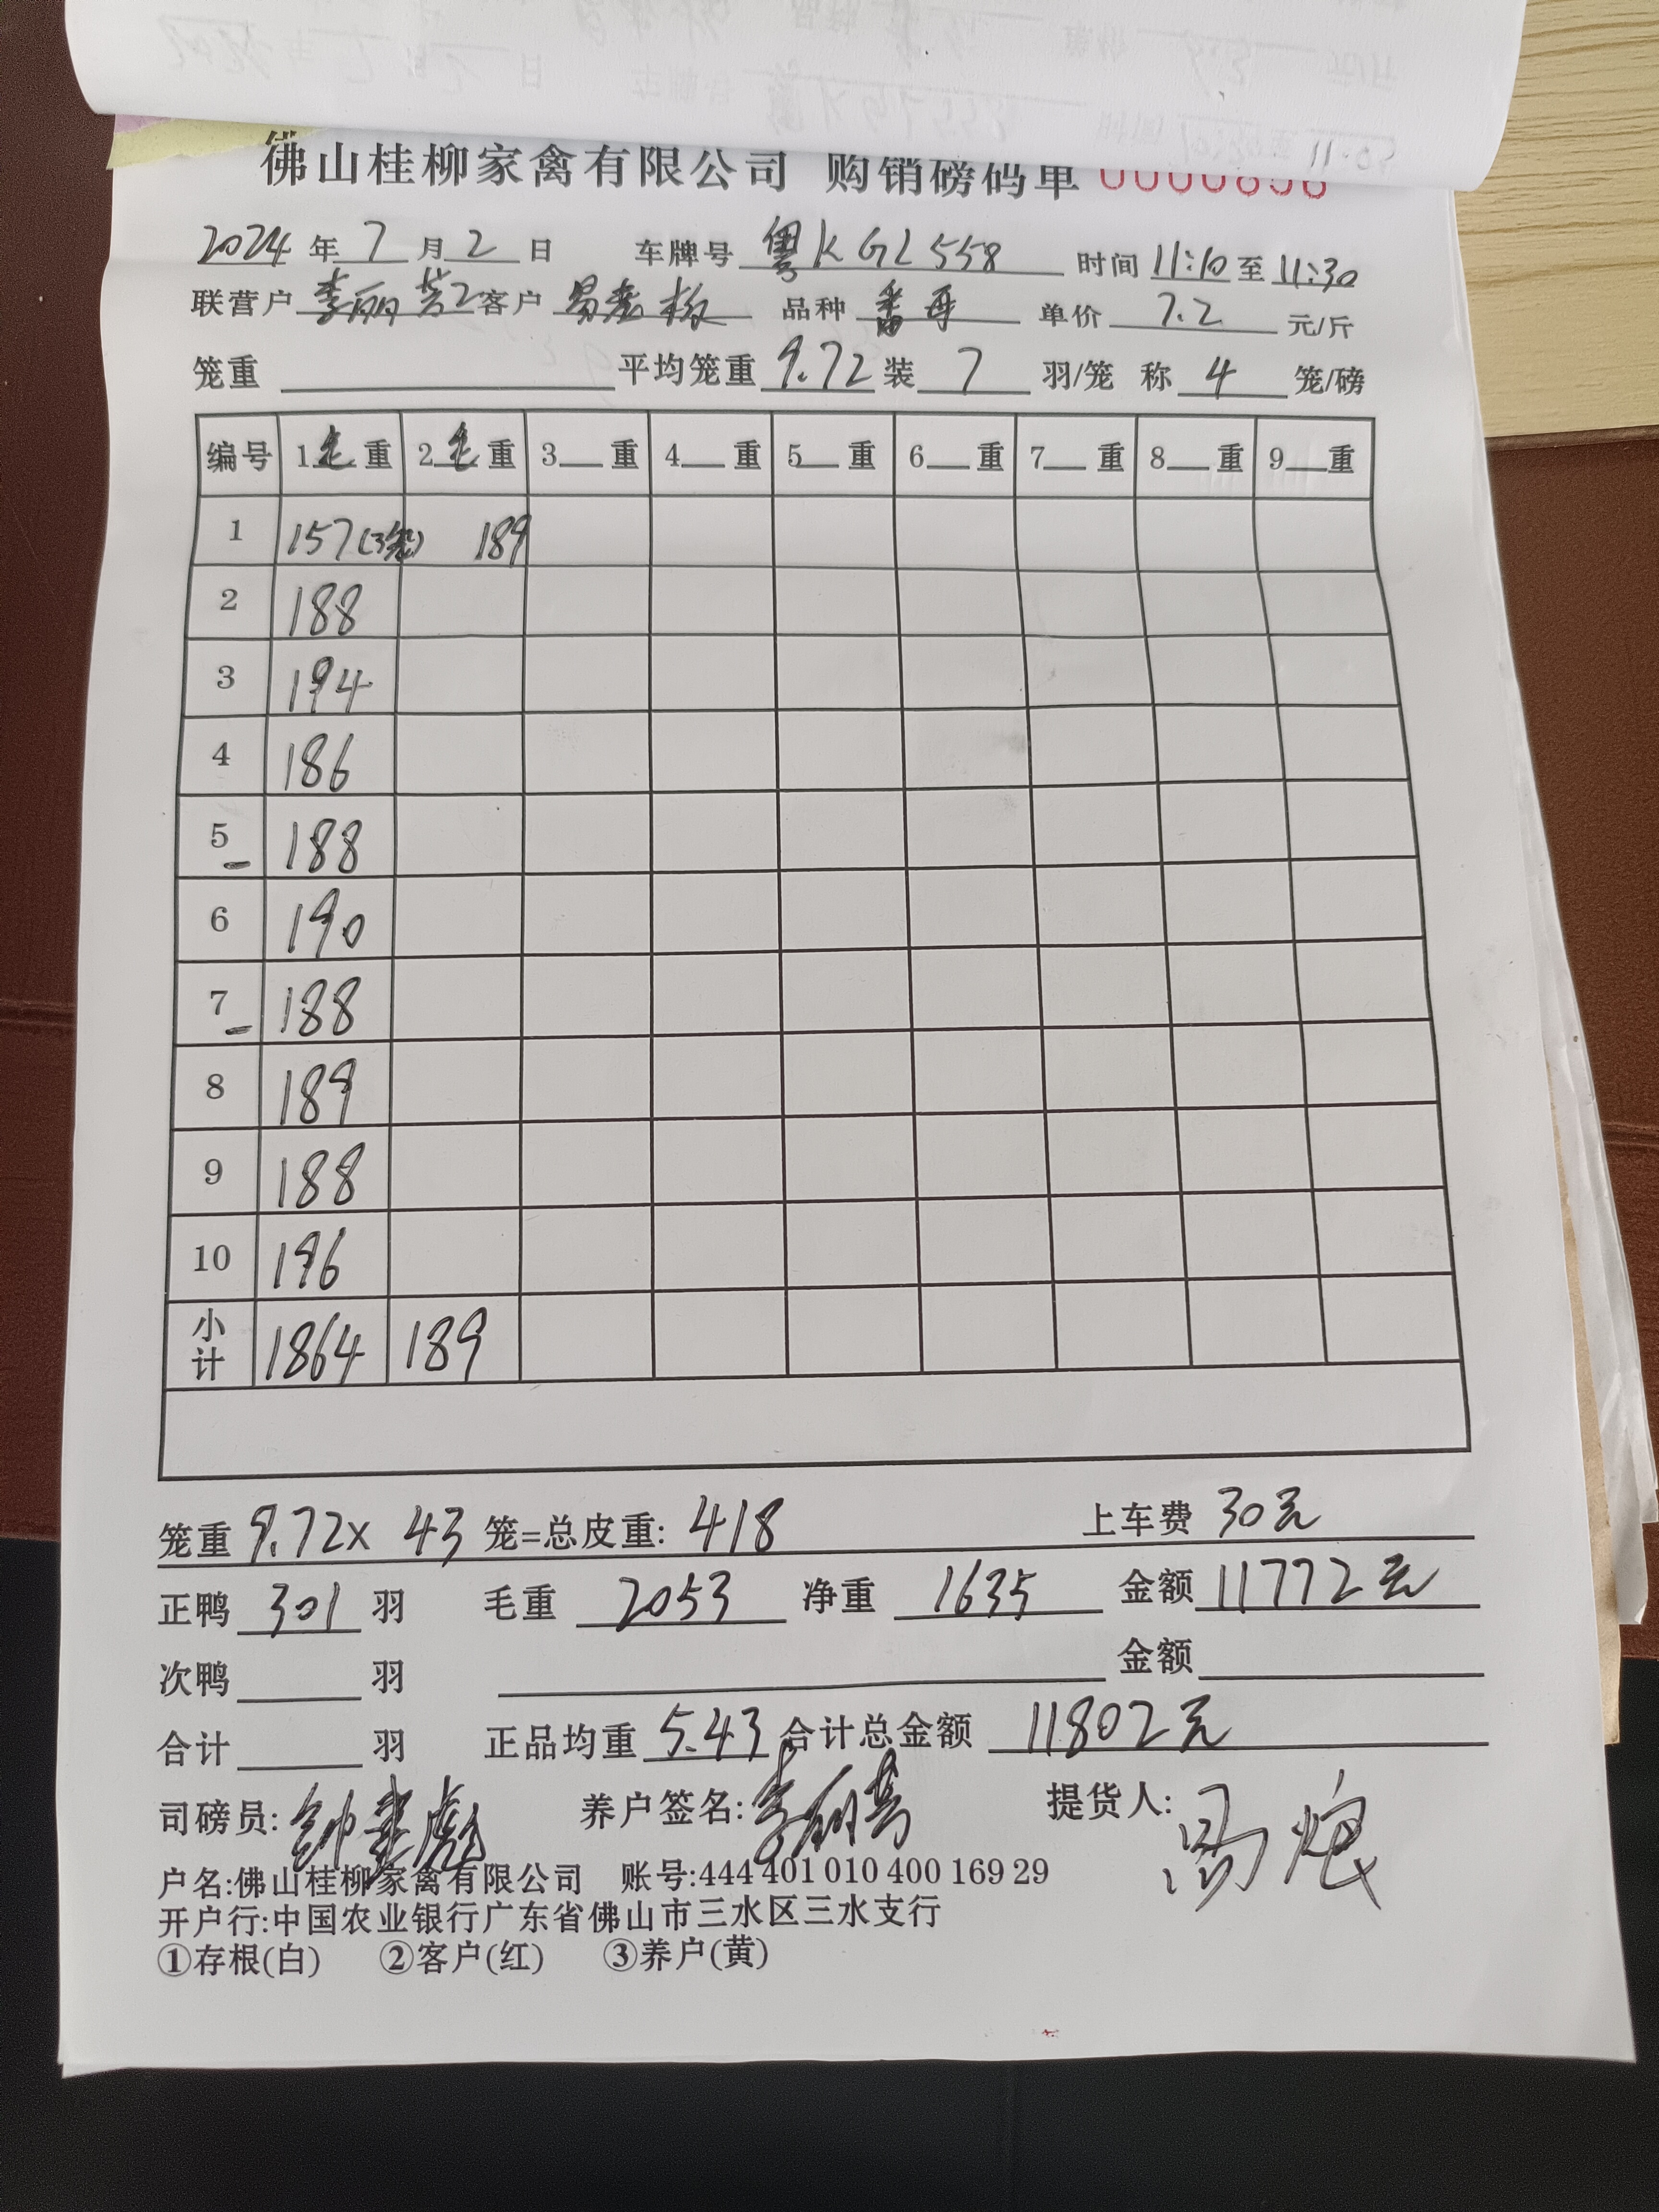 佛山桂柳家禽有限公司 购销磅码单 0000896
2024 年 7 月 2 日 车牌号 粤KGL558 时间 11:10 至 11:30
联营户 李丽芳2 客户 易 品种 番 单价 7.2 元/斤
笼重 平均笼重 9.72 装 7 羽/笼 称 4 笼/磅
编号 1毛重 2毛重 3__重 4__重 5__重 6__重 7__重 8__重 9__重
1 157(3笼) 189
2 188
3 194
4 186
5 188
6 190
7 188
8 189
9 188
10 196
小计 1864 189
笼重 9.72x 43 笼=总皮重: 418 上车费 30元
正鸭 301 羽 毛重 2053 净重 1635 金额 11772元
次鸭 羽 金额
合计 羽 正品均重 5.43 合计总金额 11802元
司磅员: 养户签名: 提货人:
户名:佛山桂柳家禽有限公司 账号:444 401 010 400 169 29
开户行:中国农业银行广东省佛山市三水区三水支行
①存根(白) ②客户(红) ③养户(黄)